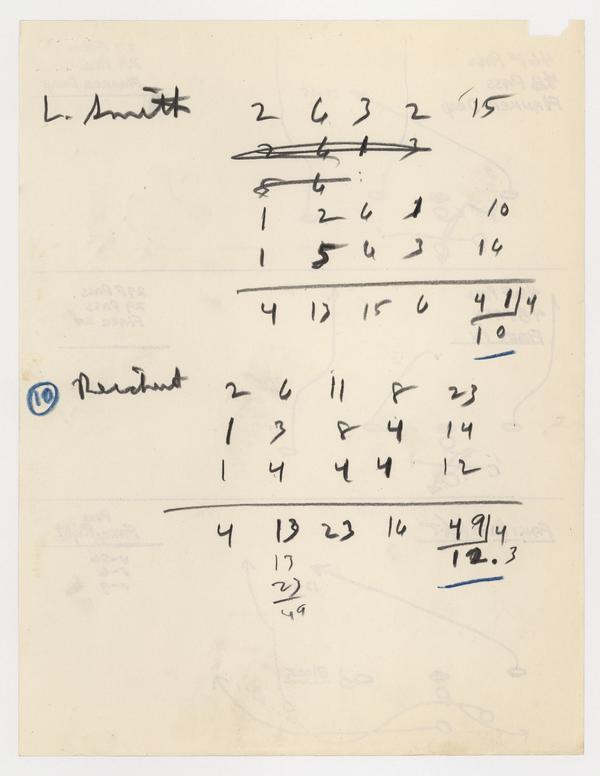 L. Smith 2 6 3 2 15
1 2 6 1 10
1 5 4 3 14
4 13 15 6 41/4
10
10 2 6 11 8 23
1 3 8 4 14
1 4 4 4 12
4 13 23 14 49/4
13 12.3
23
49